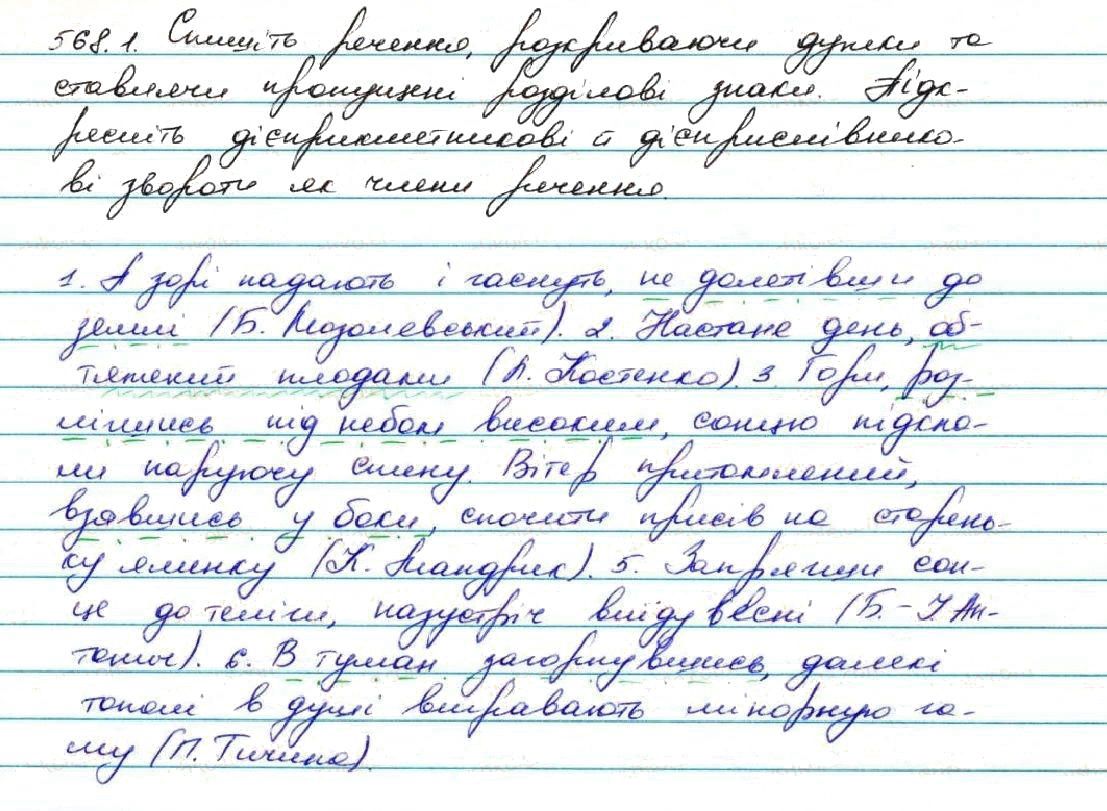 568.1. Спишіть речення, розкриваючи дужки та
ставлячи пропущені розділові знаки. Підк-
ресліть дієприкметникові й дієприслівнико-
ві звороти як члени речення.
1. А зорі падають і гаснуть, не долетівши до
землі (Б. Мозолевський). 2. Настане день, об-
тяжений плодами (Л. Костенко). 3. Гори, роз-
лігшись під небом високим, сонцю підкла-
ли паруючу спину. Вітер притомлений,
взявшись у боки, спочити присів на старень-
ку ялинку (К. Мандрик). 5. Запрягши сон-
це до теліги, назустріч вийду весні (Б.-І. Ан-
тонич). 6. В туман загорнувшись, далекі
тополі в душі вигравають мінорную га-
му (П. Тичина).